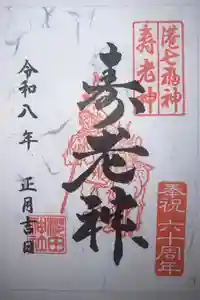 港七福神
寿老神
奉祝 六十周年
寿老神
令和八年 正月吉日